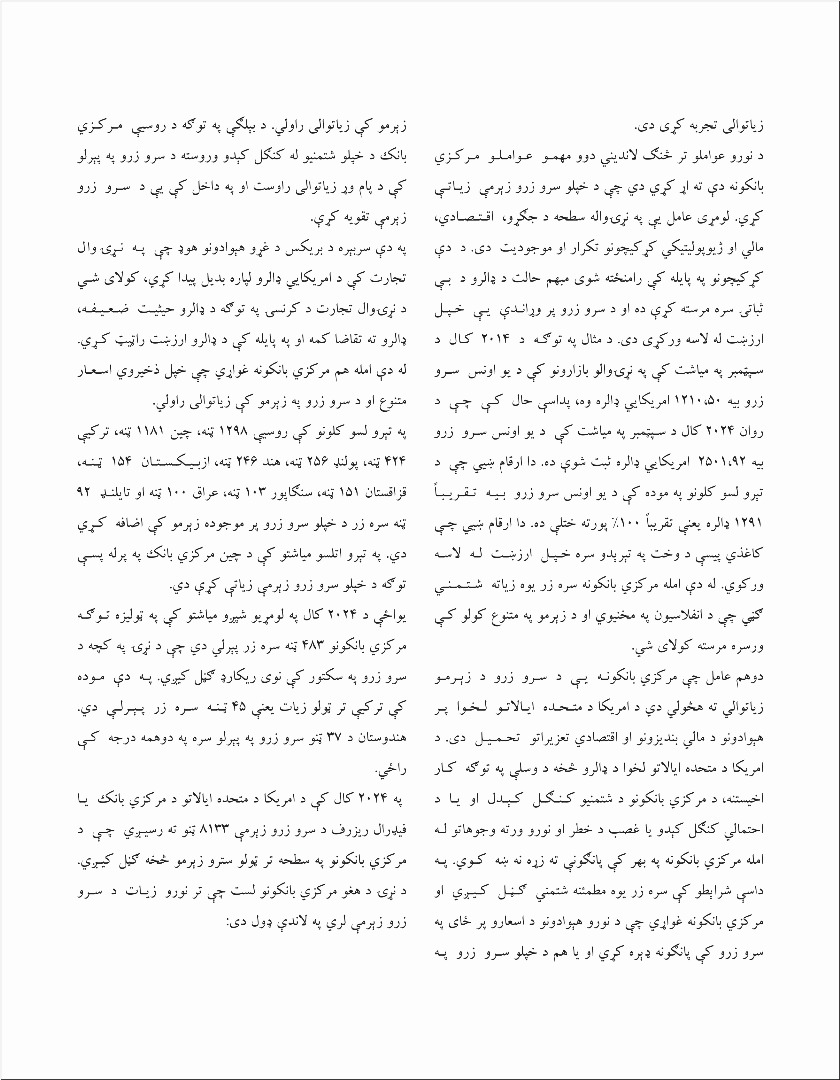 زیاتوالی تجربه کړی دی.
د نورو عواملو تر څنګ لاندیني دوو مهمو عواملو مرکزي
بانکونه دې ته اړ کړي دي چې د خپلو سرو زرو زېرمې زیاتې
کړي. لومړی عامل یې په نړۍواله سطحه د جګړو، اقتصادي،
مالي او ژیوپولیتیکي کړکیچونو تکرار او موجودیت دی. د دې
کړکیچونو په پایله کې رامنځته شوی مبهم حالت د ډالرو د بې
ثباتۍ سره مرسته کړې ده او د سرو زرو پر وړاندې یې خپل
ارزښت له لاسه ورکړی دی. د مثال په توګه د ۲۰۱۴ کال د
سپټمبر په میاشت کې په نړۍوالو بازارونو کې د یو اونس سرو
زرو بیه ۱۲۱۰،۵۰ امریکایي ډالره وه، پداسې حال کې چې د
روان ۲۰۲۴ کال د سپټمبر په میاشت کې د یو اونس سرو زرو
بیه ۲۵۰۱،۹۲ امریکایي ډالره ثبت شوې ده. دا ارقام ښیي چې د
تېرو لسو کلونو په موده کې د یو اونس سرو زرو بیه تقریباً
۱۲۹۱ ډالره یعنې تقریباً ۱۰۰٪ پورته ختلې ده. دا ارقام ښیي چې
کاغذي پیسې د وخت په تېرېدو سره خپل ارزښت له لاسه
ورکوي. له دې امله مرکزي بانکونه سره زر یوه زیاته شتمني
ګڼي چې د انفلاسیون په مخنیوي او د زېرمو په متنوع کولو کې
ورسره مرسته کولای شي.
دوهم عامل چې مرکزي بانکونه یې د سرو زرو د زېرمو
زیاتوالي ته هڅولي دي د امریکا د متحده ایالاتو لخوا پر
هېوادونو د مالي بندیزونو او اقتصادي تعزیراتو تحمیل دی. د
امریکا د متحده ایالاتو لخوا د ډالرو څخه د وسلې په توګه کار
اخیستنه، د مرکزي بانکونو د شتمنیو کنګل کېدل او یا د
احتمالي کنګل کېدو یا غصب د خطر او نورو ورته وجوهاتو له
امله مرکزي بانکونه په بهر کې پانګونې ته زړه نه ښه کوي. په
داسې شرایطو کې سره زر یوه مطمئنه شتمني ګڼل کیږي او
مرکزي بانکونه غواړي چې د نورو هېوادونو د اسعارو پر ځای په
سرو زرو کې پانګونه ډېره کړي او یا هم د خپلو سرو زرو په
زېرمو کې زیاتوالی راولي. د بېلګې په توګه د روسیې مرکزي
بانک د خپلو شتمنیو له کنګل کېدو وروسته د سرو زرو په پېرلو
کې د پام وړ زیاتوالی راوست او په داخل کې یې د سرو زرو
زېرمې تقویه کړې.
په دې سربېره د بریکس د غړو هېوادونو هوډ چې په نړۍ وال
تجارت کې د امریکایي ډالرو لپاره بدیل پیدا کړي، کولای شي
د نړۍوال تجارت د کرنسۍ په توګه د ډالرو حیثیت ضعیفه،
ډالرو ته تقاضا کمه او په پایله کې د ډالرو ارزښت راټیټ کړي.
له دې امله هم مرکزي بانکونه غواړي چې خپل ذخیروي اسعار
متنوع او د سرو زرو په زېرمو کې زیاتوالی راولي.
په تېرو لسو کلونو کې روسیې ۱۲۹۸ ټنه، چین ۱۱۸۱ ټنه، ترکیې
۴۲۴ ټنه، پولنډ ۲۵۶ ټنه، هند ۲۴۶ ټنه، ازبیکستان ۱۵۴ ټنه،
قزاقستان ۱۵۱ ټنه، سنګاپور ۱۰۳ ټنه، عراق ۱۰۰ ټنه او تایلنډ ۹۲
ټنه سره زر د خپلو سرو زرو پر موجوده زېرمو کې اضافه کړي
دي. په تېرو اتلسو میاشتو کې د چین مرکزي بانک په پرله پسې
توګه د خپلو سرو زرو زېرمې زیاتې کړې دي.
یواځې د ۲۰۲۴ کال په لومړیو شپږو میاشتو کې په ټولیزه توګه
مرکزي بانکونو ۴۸۳ ټنه سره زر پېرلي دي چې د نړۍ په کچه د
سرو زرو په سکتور کې نوی ریکارډ ګڼل کیږي. په دې موده
کې ترکیې تر ټولو زیات یعنې ۴۵ ټنه سره زر پېرلي دي.
هندوستان د ۳۷ ټنو سرو زرو په پېرلو سره په دوهمه درجه کې
راځي.
په ۲۰۲۴ کال کې د امریکا د متحده ایالاتو د مرکزي بانک یا
فیډرال ریزرف د سرو زرو زېرمې ۸۱۳۳ ټنو ته رسیږي چې د
مرکزي بانکونو په سطحه تر ټولو سترو زېرمو څخه ګڼل کیږي.
د نړۍ د هغو مرکزي بانکونو لست چې تر نورو زیات د سرو
زرو زېرمې لري په لاندې ډول دی: